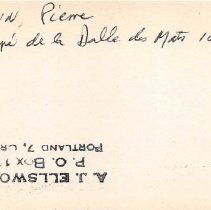 IN, Pierre
pé de la Dalle des Mats 10
A. J. ELLSWO
P. O. BOX 1
PORTLAND 7, OR